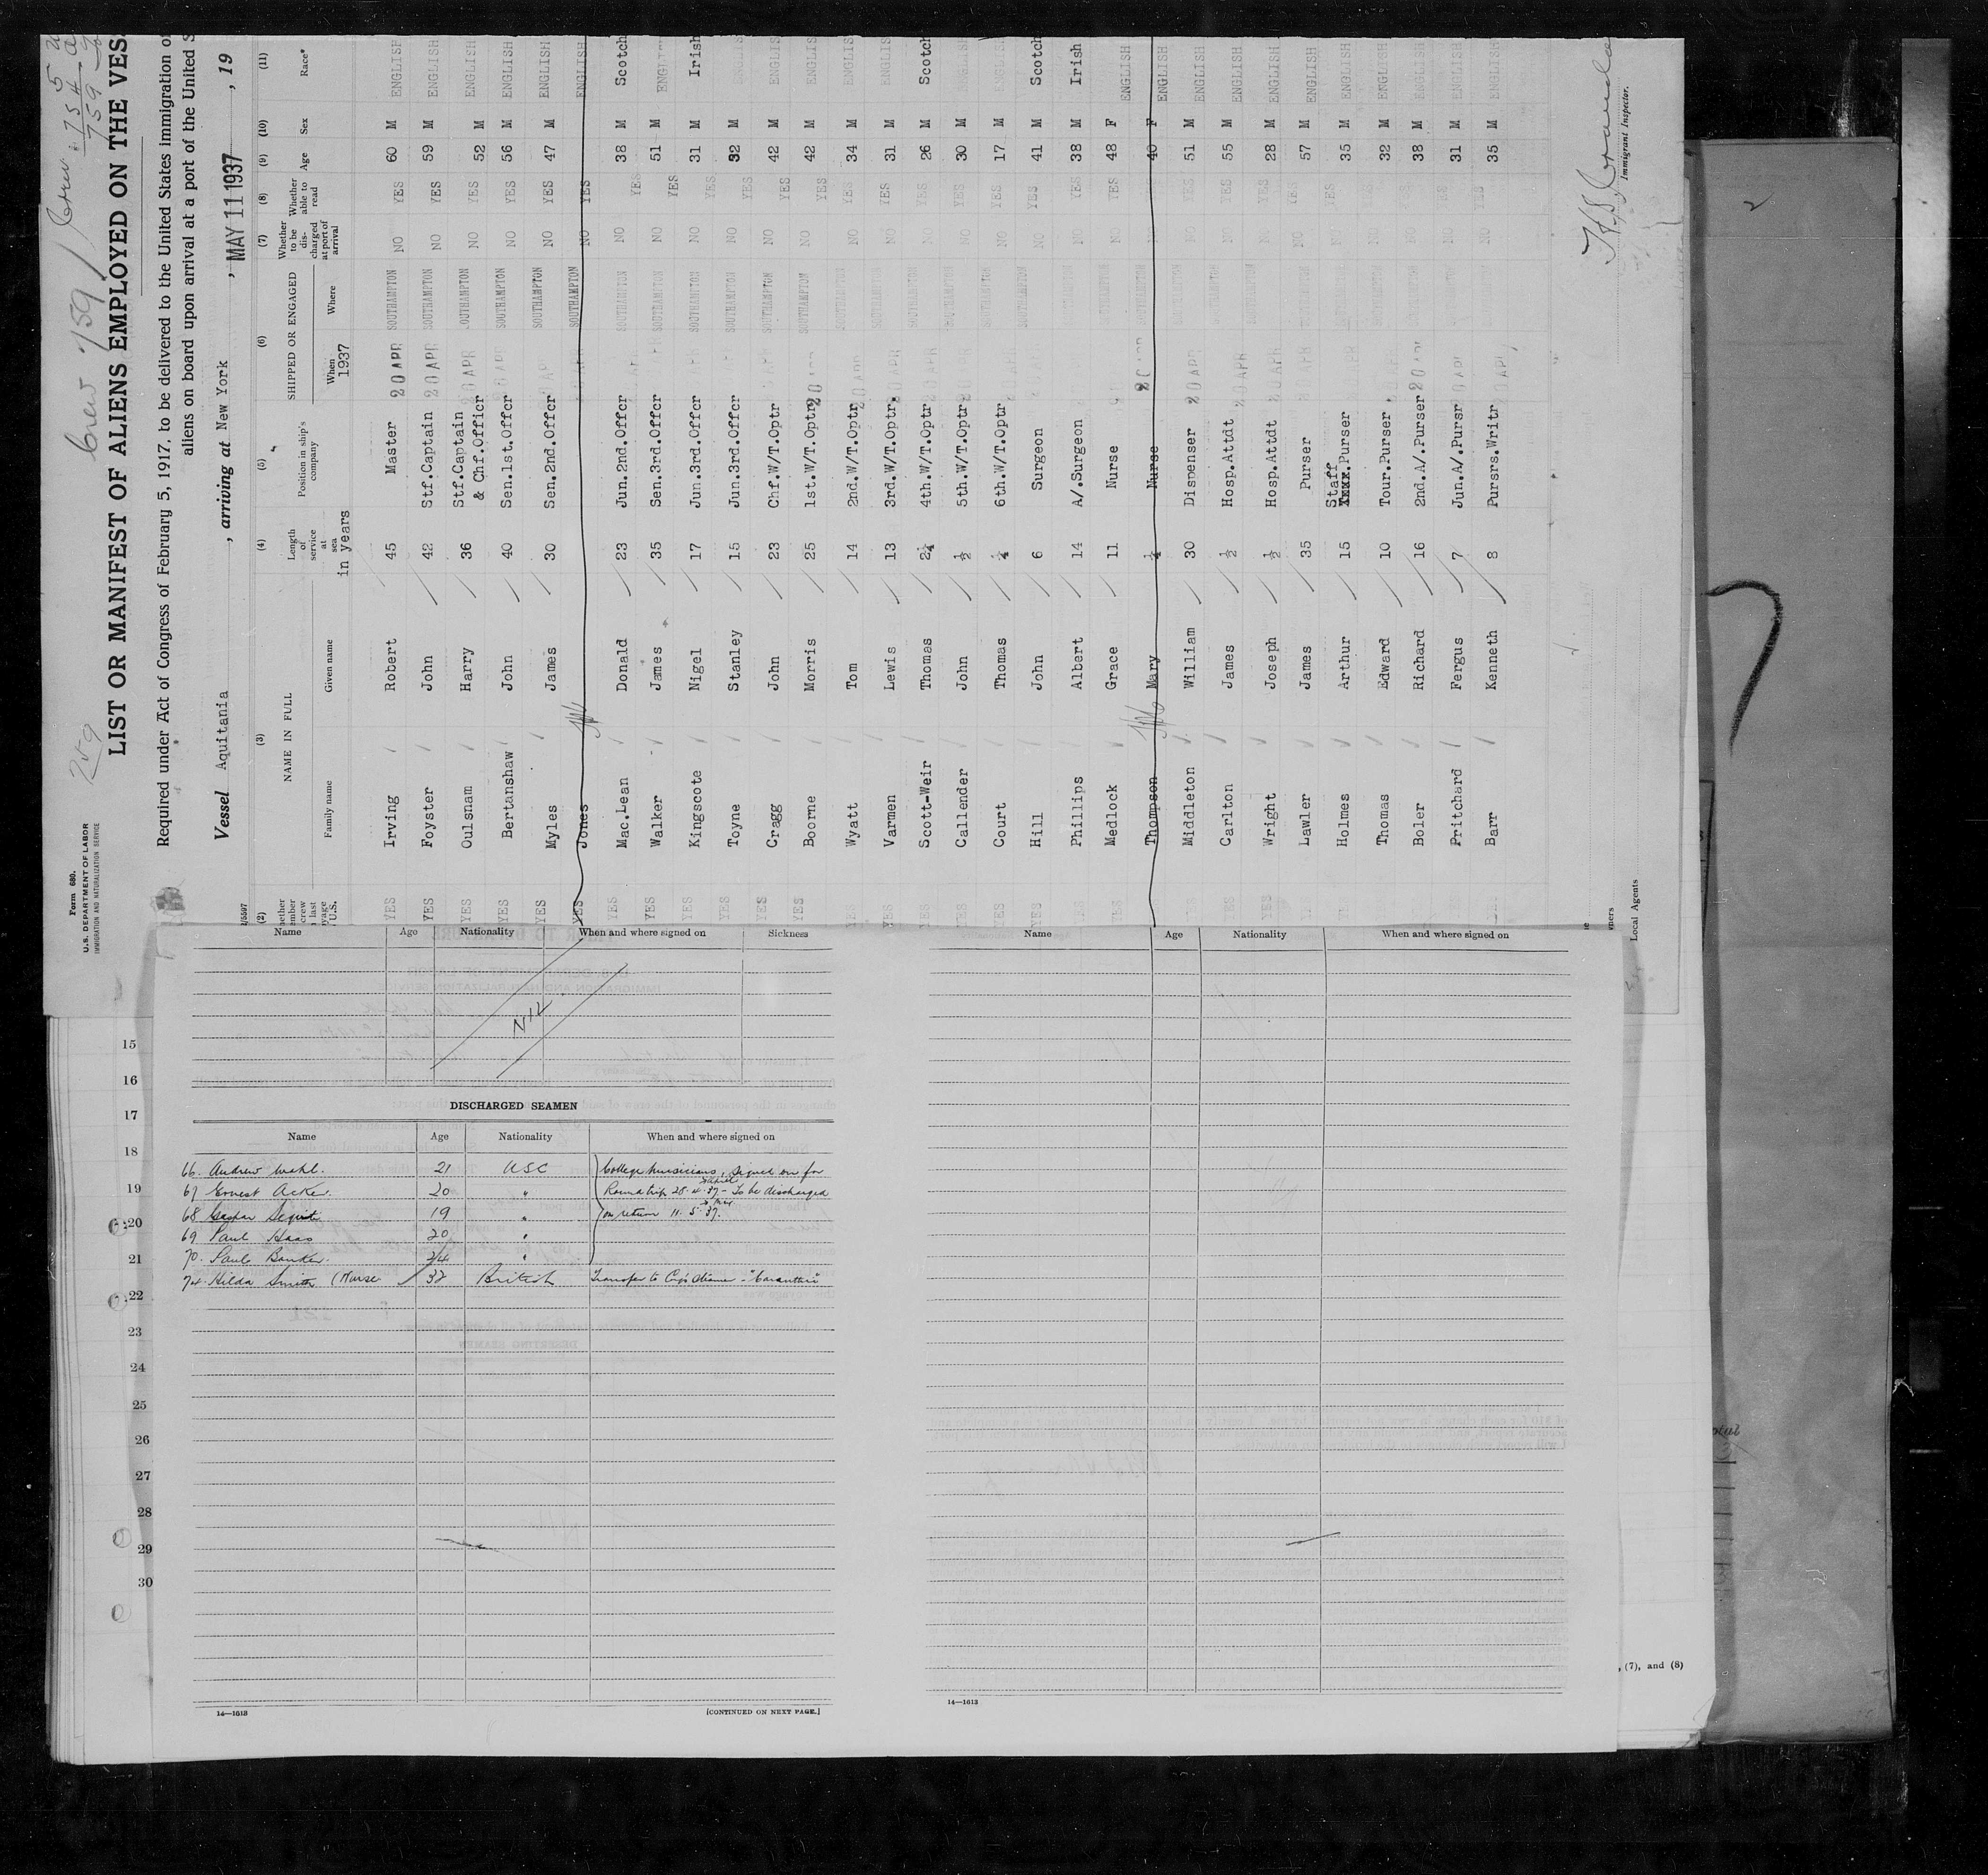 Form 680.
U.S. DEPARTMENT OF LABOR
IMMIGRATION AND NATURALIZATION SERVICE
Crew 759
LIST OR MANIFEST OF ALIENS EMPLOYED ON THE VES
Required under Act of Congress of February 5, 1917, to be delivered to the United States immigration o
aliens on board upon arrival at a port of the United S
Vessel Aquitania , arriving at New York , MAY 11 1937 , 19
(2) (3) (4) (5) (6) (7) (8) (9) (10) (11)
NAME IN FULL
Family name Given name Length of service at sea in years Position in ship's company SHIPPED OR ENGAGED When 1937 Where Whether to be discharged at port of arrival Whether able to read Age Sex Race*
YES Irving Robert 45 Master 20 APR SOUTHAMPTON NO YES 60 M ENGLISH
YES Foyster John 42 Stf.Captain 20 APR SOUTHAMPTON NO YES 59 M ENGLISH
YES Oulsnam Harry 36 Stf.Captain & Chf.Officr 20 APR SOUTHAMPTON NO YES 52 M ENGLISH
YES Bertanshaw John 40 Sen.1st.Offcr SOUTHAMPTON NO YES 56 M ENGLISH
YES Myles James 30 Sen.2nd.Offcr SOUTHAMPTON NO YES 47 M ENGLISH
YES Jones SOUTHAMPTON NO YES ENGLISH
YES Mac.Lean Donald 23 Jun.2nd.Offcr SOUTHAMPTON NO YES 38 M Scotch
YES Walker James 35 Sen.3rd.Offcr SOUTHAMPTON NO YES 51 M ENGLISH
YES Kingscote Nigel 17 Jun.3rd.Offcr SOUTHAMPTON NO YES 31 M Irish
YES Toyne Stanley 15 Jun.3rd.Offcr SOUTHAMPTON NO YES 32 M
YES Cragg John 23 Chf.W/T.Optr SOUTHAMPTON NO YES 42 M ENGLISH
YES Boorne Morris 25 1st.W/T.Optr 20 SOUTHAMPTON NO YES 42 M ENGLISH
YES Wyatt Tom 14 2nd.W/T.Optr 20 APR SOUTHAMPTON NO YES 34 M ENGLISH
Varmen Lewis 13 3rd.W/T.Optr. SOUTHAMPTON NO YES 31 M ENGLISH
YES Scott-Weir Thomas 2¼ 4th.W/T.Optr 20 APR SOUTHAMPTON NO YES 26 M Scotch
YES Callender John ½ 5th.W/T.Optr. SOUTHAMPTON NO YES 30 M ENGLISH
YES Court Thomas ¼ 6th.W/T.Optr SOUTHAMPTON NO YES 17 M ENGLISH
YES Hill John 6 Surgeon SOUTHAMPTON NO YES 41 M Scotch
Phillips Albert 14 A/.Surgeon NO YES 38 M Irish
YES Medlock Grace 11 Nurse YES 48 F ENGLISH
Thompson Mary ¼ Nurse SOUTHAMPTON 40 F ENGLISH
Middleton William 30 Dispenser 20 APR NO YES 51 M ENGLISH
Carlton James ½ Hosp.Attdt 20 APR NO YES 55 M ENGLISH
YES Wright Joseph ½ Hosp.Attdt 20 APR NO YES 28 M ENGLISH
Lawler James 35 Purser NO YES 57 M ENGLISH
Holmes Arthur 15 Staff Purser NO YES 35 M ENGLISH
Thomas Edward 10 Tour.Purser NO YES 32 M ENGLISH
Boler Richard 16 2nd.A/.Purser 20 APR NO YES 38 M ENGLISH
Pritchard Fergus 7 Jun.A/.Pursr NO YES 31 M ENGLISH
Barr Kenneth 8 Pursrs.Writr NO YES 35 M ENGLISH
Immigrant Inspector.
Local Agents
Name Age Nationality When and where signed on Sickness
NIL
DISCHARGED SEAMEN
Name Age Nationality When and where signed on
66. Andrew Wahl. 21 USC College Musicians, signed on for
67 Ernest Acker. 20 " Round trip 28.4.37 - To be discharged
68 19 " on return 11.5.37.
69 Paul Haas 20 "
70. Paul "
74. Hilda Smith (Nurse 32 British Transfer to
14—1613 [CONTINUED ON NEXT PAGE.]
Name Age Nationality When and where signed on
14—1613
15
16
17
18
19
20
21
22
23
24
25
26
27
28
29
30
, (7), and (8)